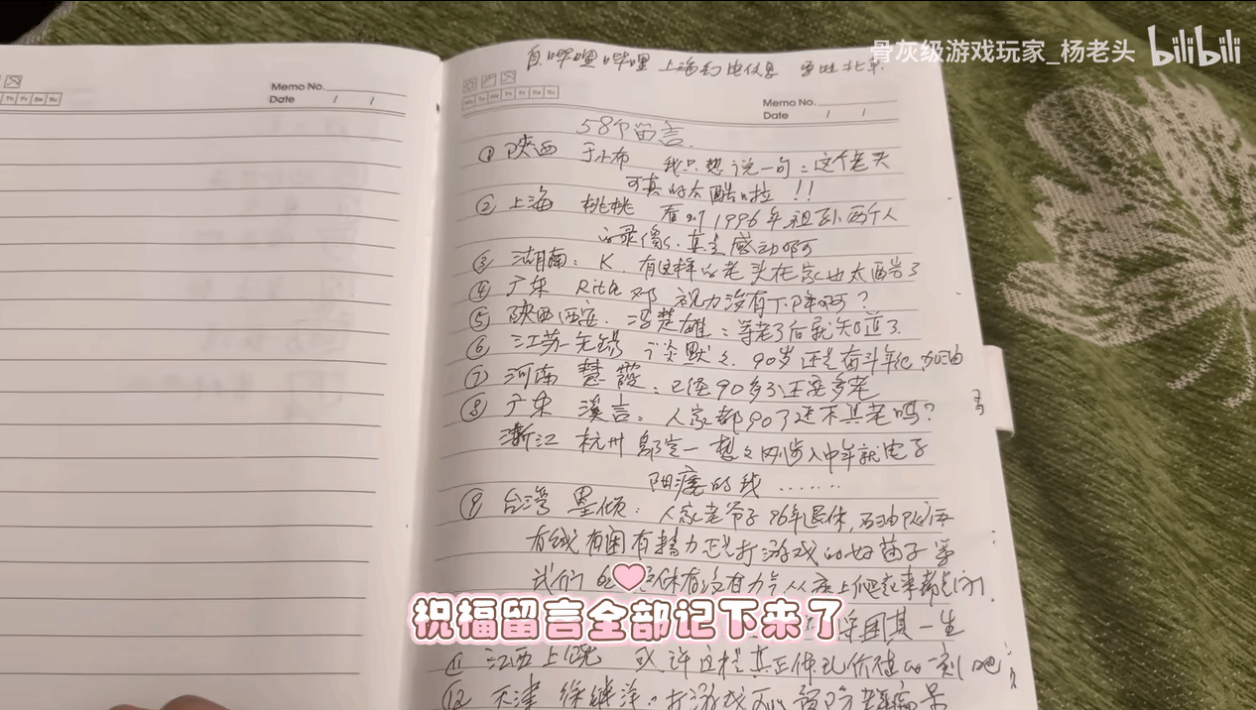 骨灰级游戏玩家_杨老头 bilibili
Memo No.
Date / /
Memo No.
Date / /
自哔哩哔哩 上海
58个留言
① 陕西 于小布 我只想说一句：这个老头
可真的太酷啦!!
② 上海 桃桃 看到1996年祖孙两个人
的录像，真是感动啊
③ 湖南：K. 有这样的老头在家也太酷了
④ 广东 Rita 邓 视力没有下降啊？
⑤ 陕西西安 冯楚雄：等老了后就知道了
⑥ 江苏无锡 谈默々 90岁还是奋斗年纪，加油
⑦ 河南 慧霞：已经90多了还要多老
⑧ 广东 溪言：人家都90了还不算老吗？
浙江 杭州 定一 想々刚步入中年就电子
阳痿的我……
⑨ 台湾 墨倾：人家老爷子96年退休，
有钱有闲有精力正是打游戏的好苗子 等
我们 休有没有力气从床上爬起来都是问
祝福留言全部记下来了
困其一生
⑪ 江西上饶 或许这样真正体现价值的一刻吧
⑫ 天津 徐继洋：打游戏可以预防老年痴呆